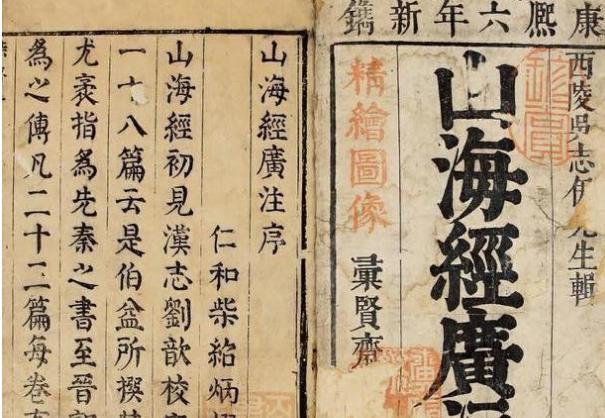 康熙六年新鐫
西陵吳志伊先生輯
山海經廣
精繪圖像
彙賢齋
山海經廣注序
仁和柴紹炳
山海經初見漢志劉歆校
一十八篇云是伯益所撰
尤袤指為先秦之書至晉郭
為之傳凡二十三篇每卷